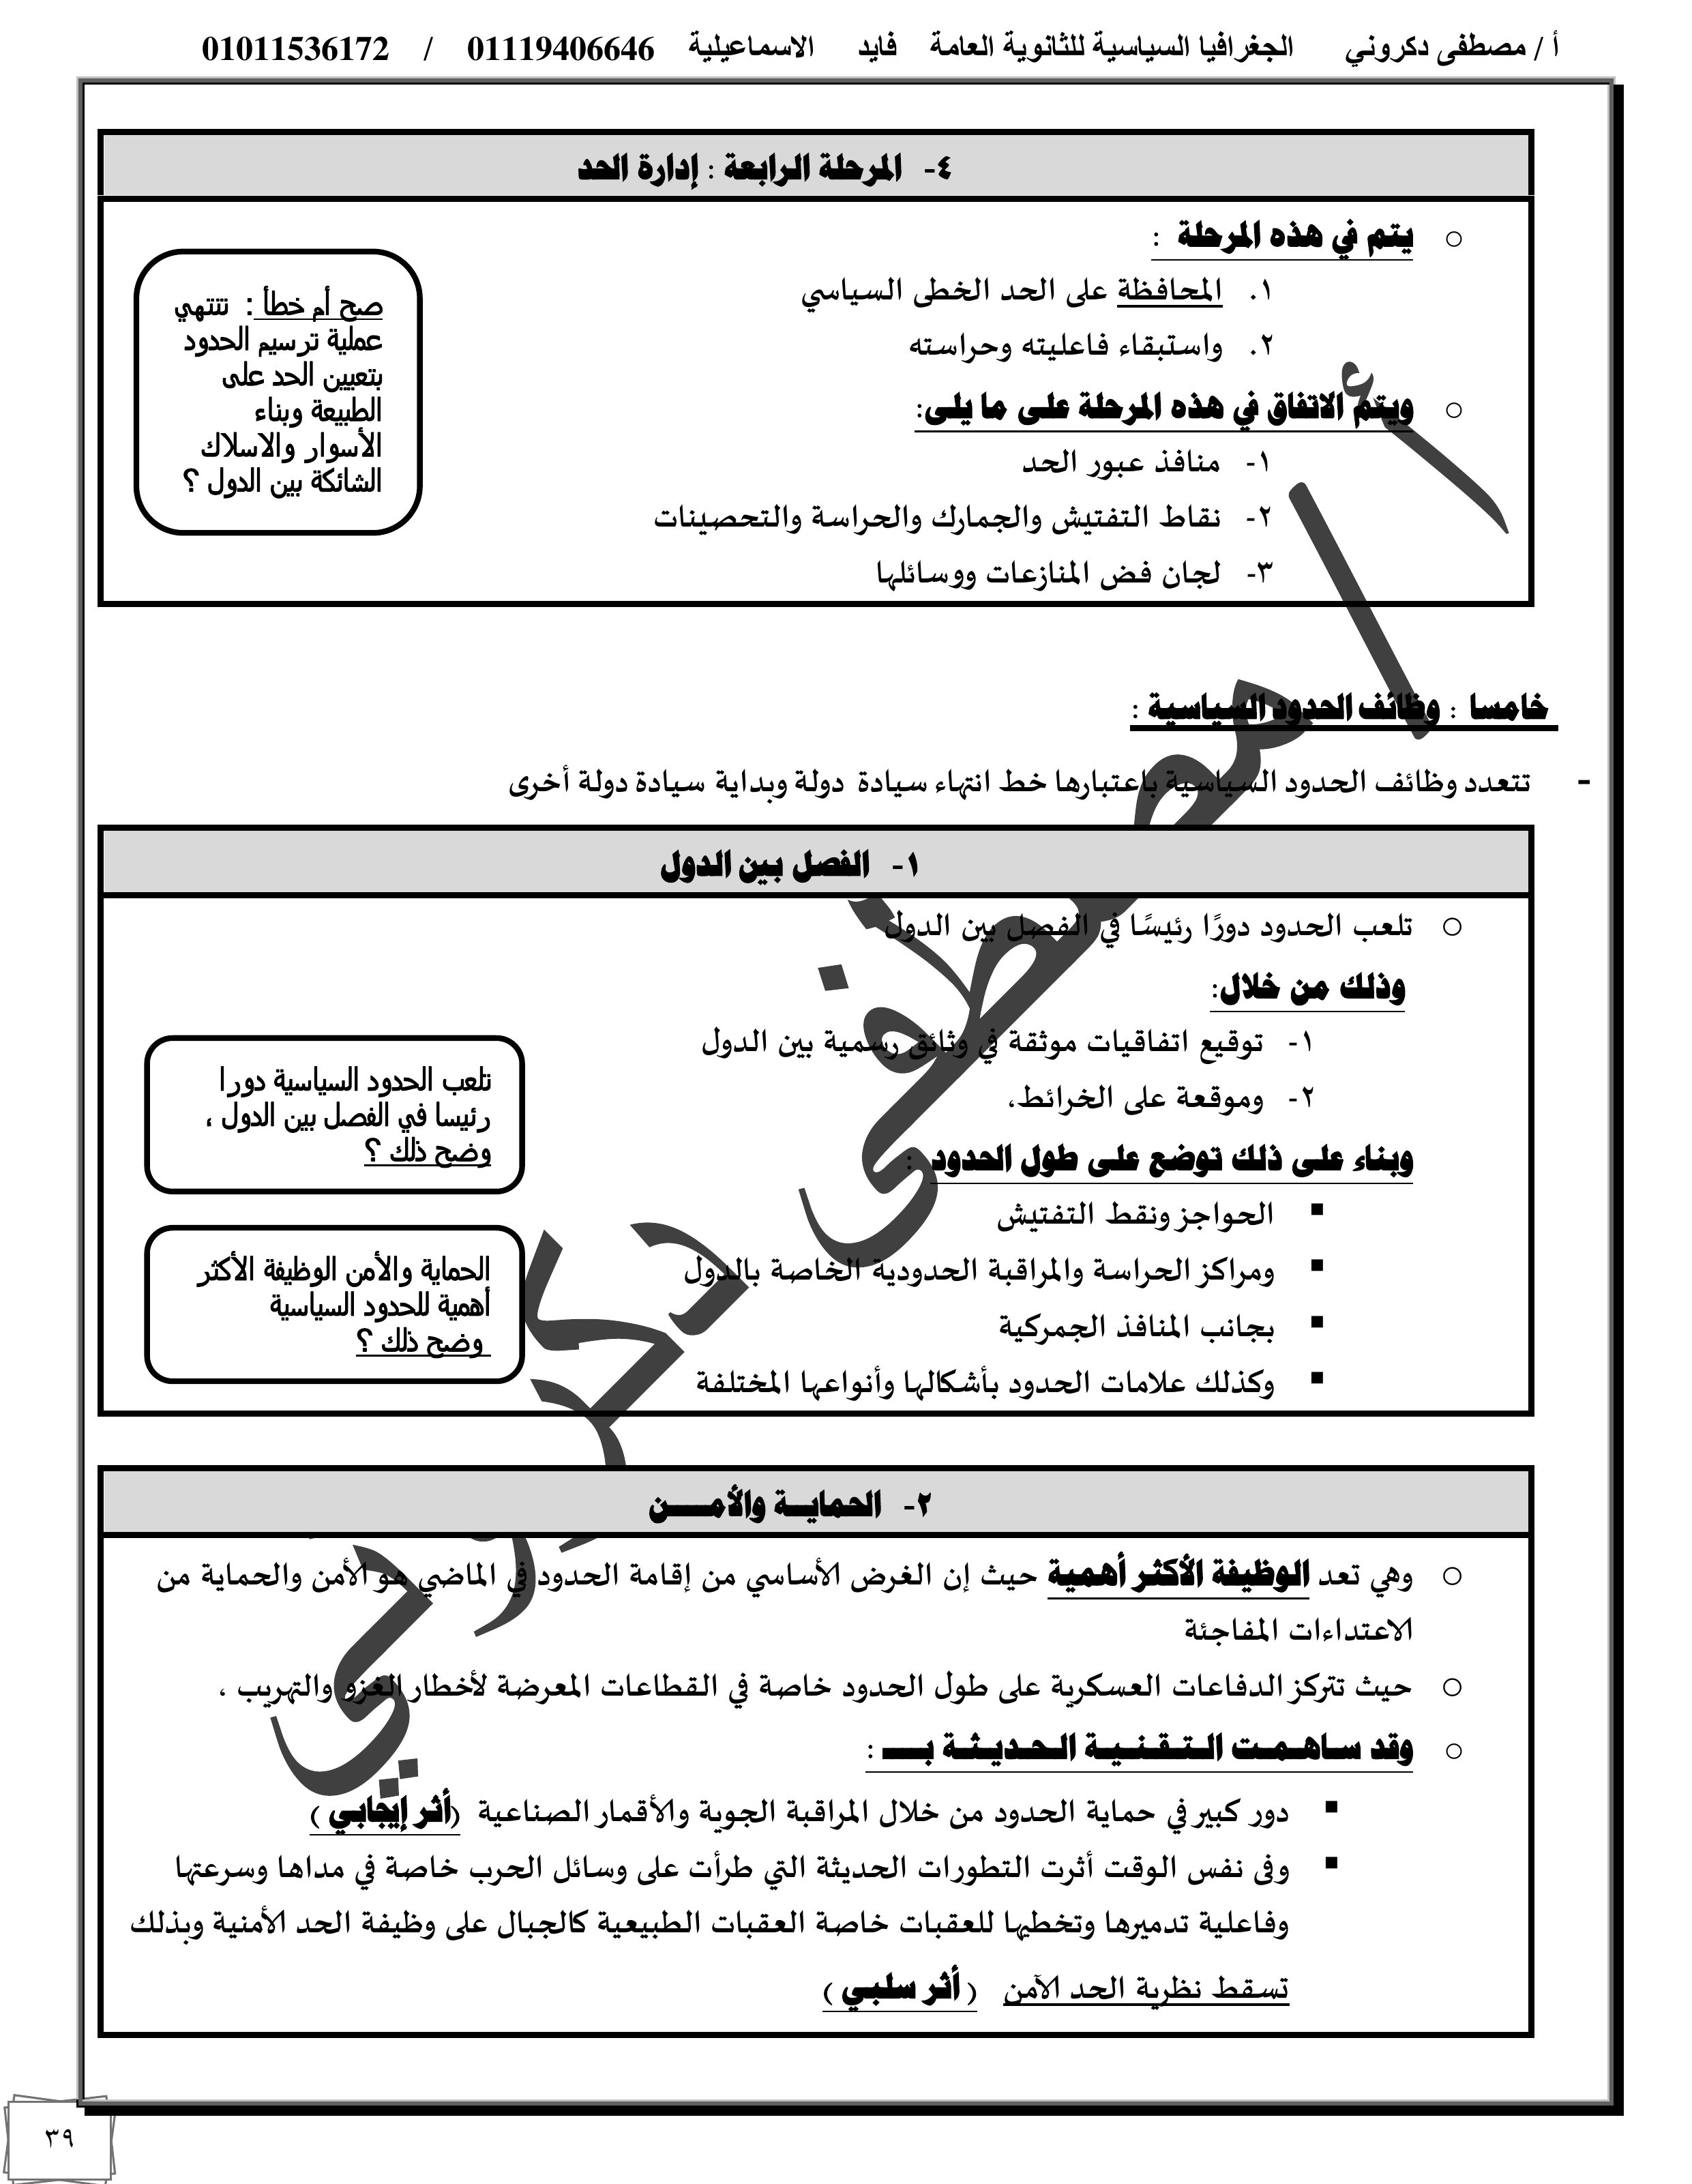 أ / مصطفى دكروني الجغرافيا السياسية للثانوية العامة فايد الاسماعيلية 01119406646 / 01011536172
٤- المرحلة الرابعة : إدارة الحد
○ يتم في هذه المرحلة :
١. المحافظة على الحد الخطى السياسي
٢. واستبقاء فاعليته وحراسته
○ ويتم الاتفاق في هذه المرحلة على ما يلى:
١- منافذ عبور الحد
٢- نقاط التفتيش والجمارك والحراسة والتحصينات
٣- لجان فض المنازعات ووسائلها
صح أم خطأ : تنتهي
عملية ترسيم الحدود
بتعيين الحد على
الطبيعة وبناء
الأسوار والاسلاك
الشائكة بين الدول ؟
خامسا : وظائف الحدود السياسية :
- تتعدد وظائف الحدود السياسية باعتبارها خط انتهاء سيادة دولة وبداية سيادة دولة أخرى
١- الفصل بين الدول
○ تلعب الحدود دورًا رئيسًا في الفصل بين الدول
وذلك من خلال:
١- توقيع اتفاقيات موثقة في وثائق رسمية بين الدول
٢- وموقعة على الخرائط،
وبناء على ذلك توضع على طول الحدود :
▪ الحواجز ونقط التفتيش
▪ ومراكز الحراسة والمراقبة الحدودية الخاصة بالدول
▪ بجانب المنافذ الجمركية
▪ وكذلك علامات الحدود بأشكالها وأنواعها المختلفة
تلعب الحدود السياسية دورا
رئيسا في الفصل بين الدول ،
وضح ذلك ؟
الحماية والأمن الوظيفة الأكثر
أهمية للحدود السياسية
وضح ذلك ؟
٢- الحمايـــة والأمـــــن
○ وهي تعد الوظيفة الأكثر أهمية حيث إن الغرض الأساسي من إقامة الحدود في الماضي هو الأمن والحماية من
الاعتداءات المفاجئة
○ حيث تتركز الدفاعات العسكرية على طول الحدود خاصة في القطاعات المعرضة لأخطار الغزو والتهريب ،
○ وقد ساهمت التقنية الحديثة بـــ :
▪ دور كبير في حماية الحدود من خلال المراقبة الجوية والأقمار الصناعية (أثر إيجابي )
▪ وفى نفس الوقت أثرت التطورات الحديثة التي طرأت على وسائل الحرب خاصة في مداها وسرعتها
وفاعلية تدميرها وتخطيها للعقبات خاصة العقبات الطبيعية كالجبال على وظيفة الحد الأمنية وبذلك
تسقط نظرية الحد الآمن ( أثر سلبي )
أ / مصطفى دكروني
٣٩